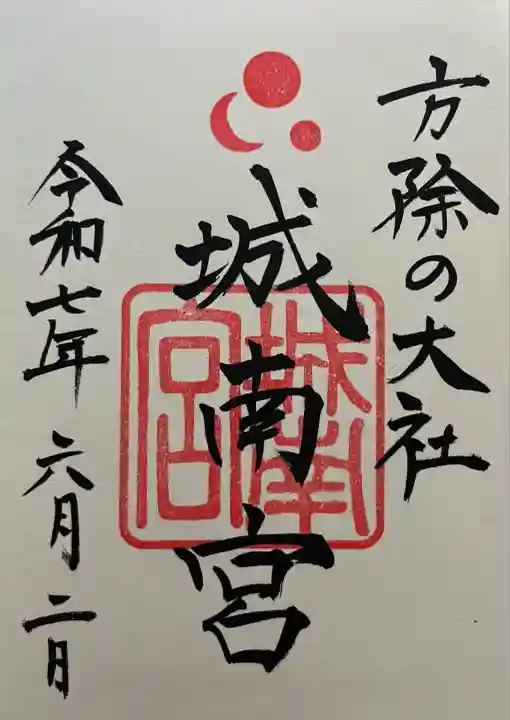 方除の大社
城南宮
城南宮
令和七年 六月二日